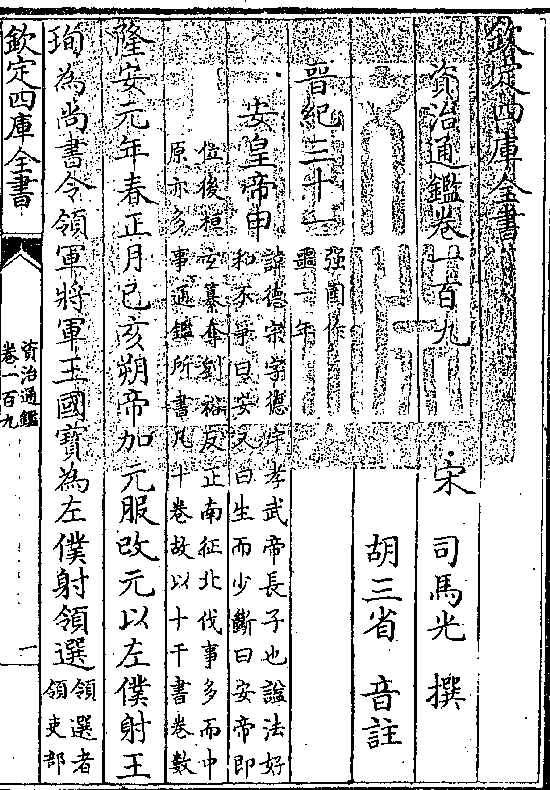 欽定四庫全書
資治通鑑卷一百九
宋 司馬光 撰
胡三省 音註
晉紀三十一
強圉作
噩一年
安皇帝甲
諱德宗字德宗孝武帝長子也諡法好
和不爭曰安又曰生而少斷曰安帝即
位後桓玄篡奪劉裕反正南征北伐事多而中
原亦多事通鑑所書凡十卷故以十干書卷數
隆安元年春正月己亥朔帝加元服改元以左僕射王
珣為尚書令領軍將軍王國寶為左僕射領選
領選者
領吏部
欽定四庫全書
資治通鑑
卷一百九
一